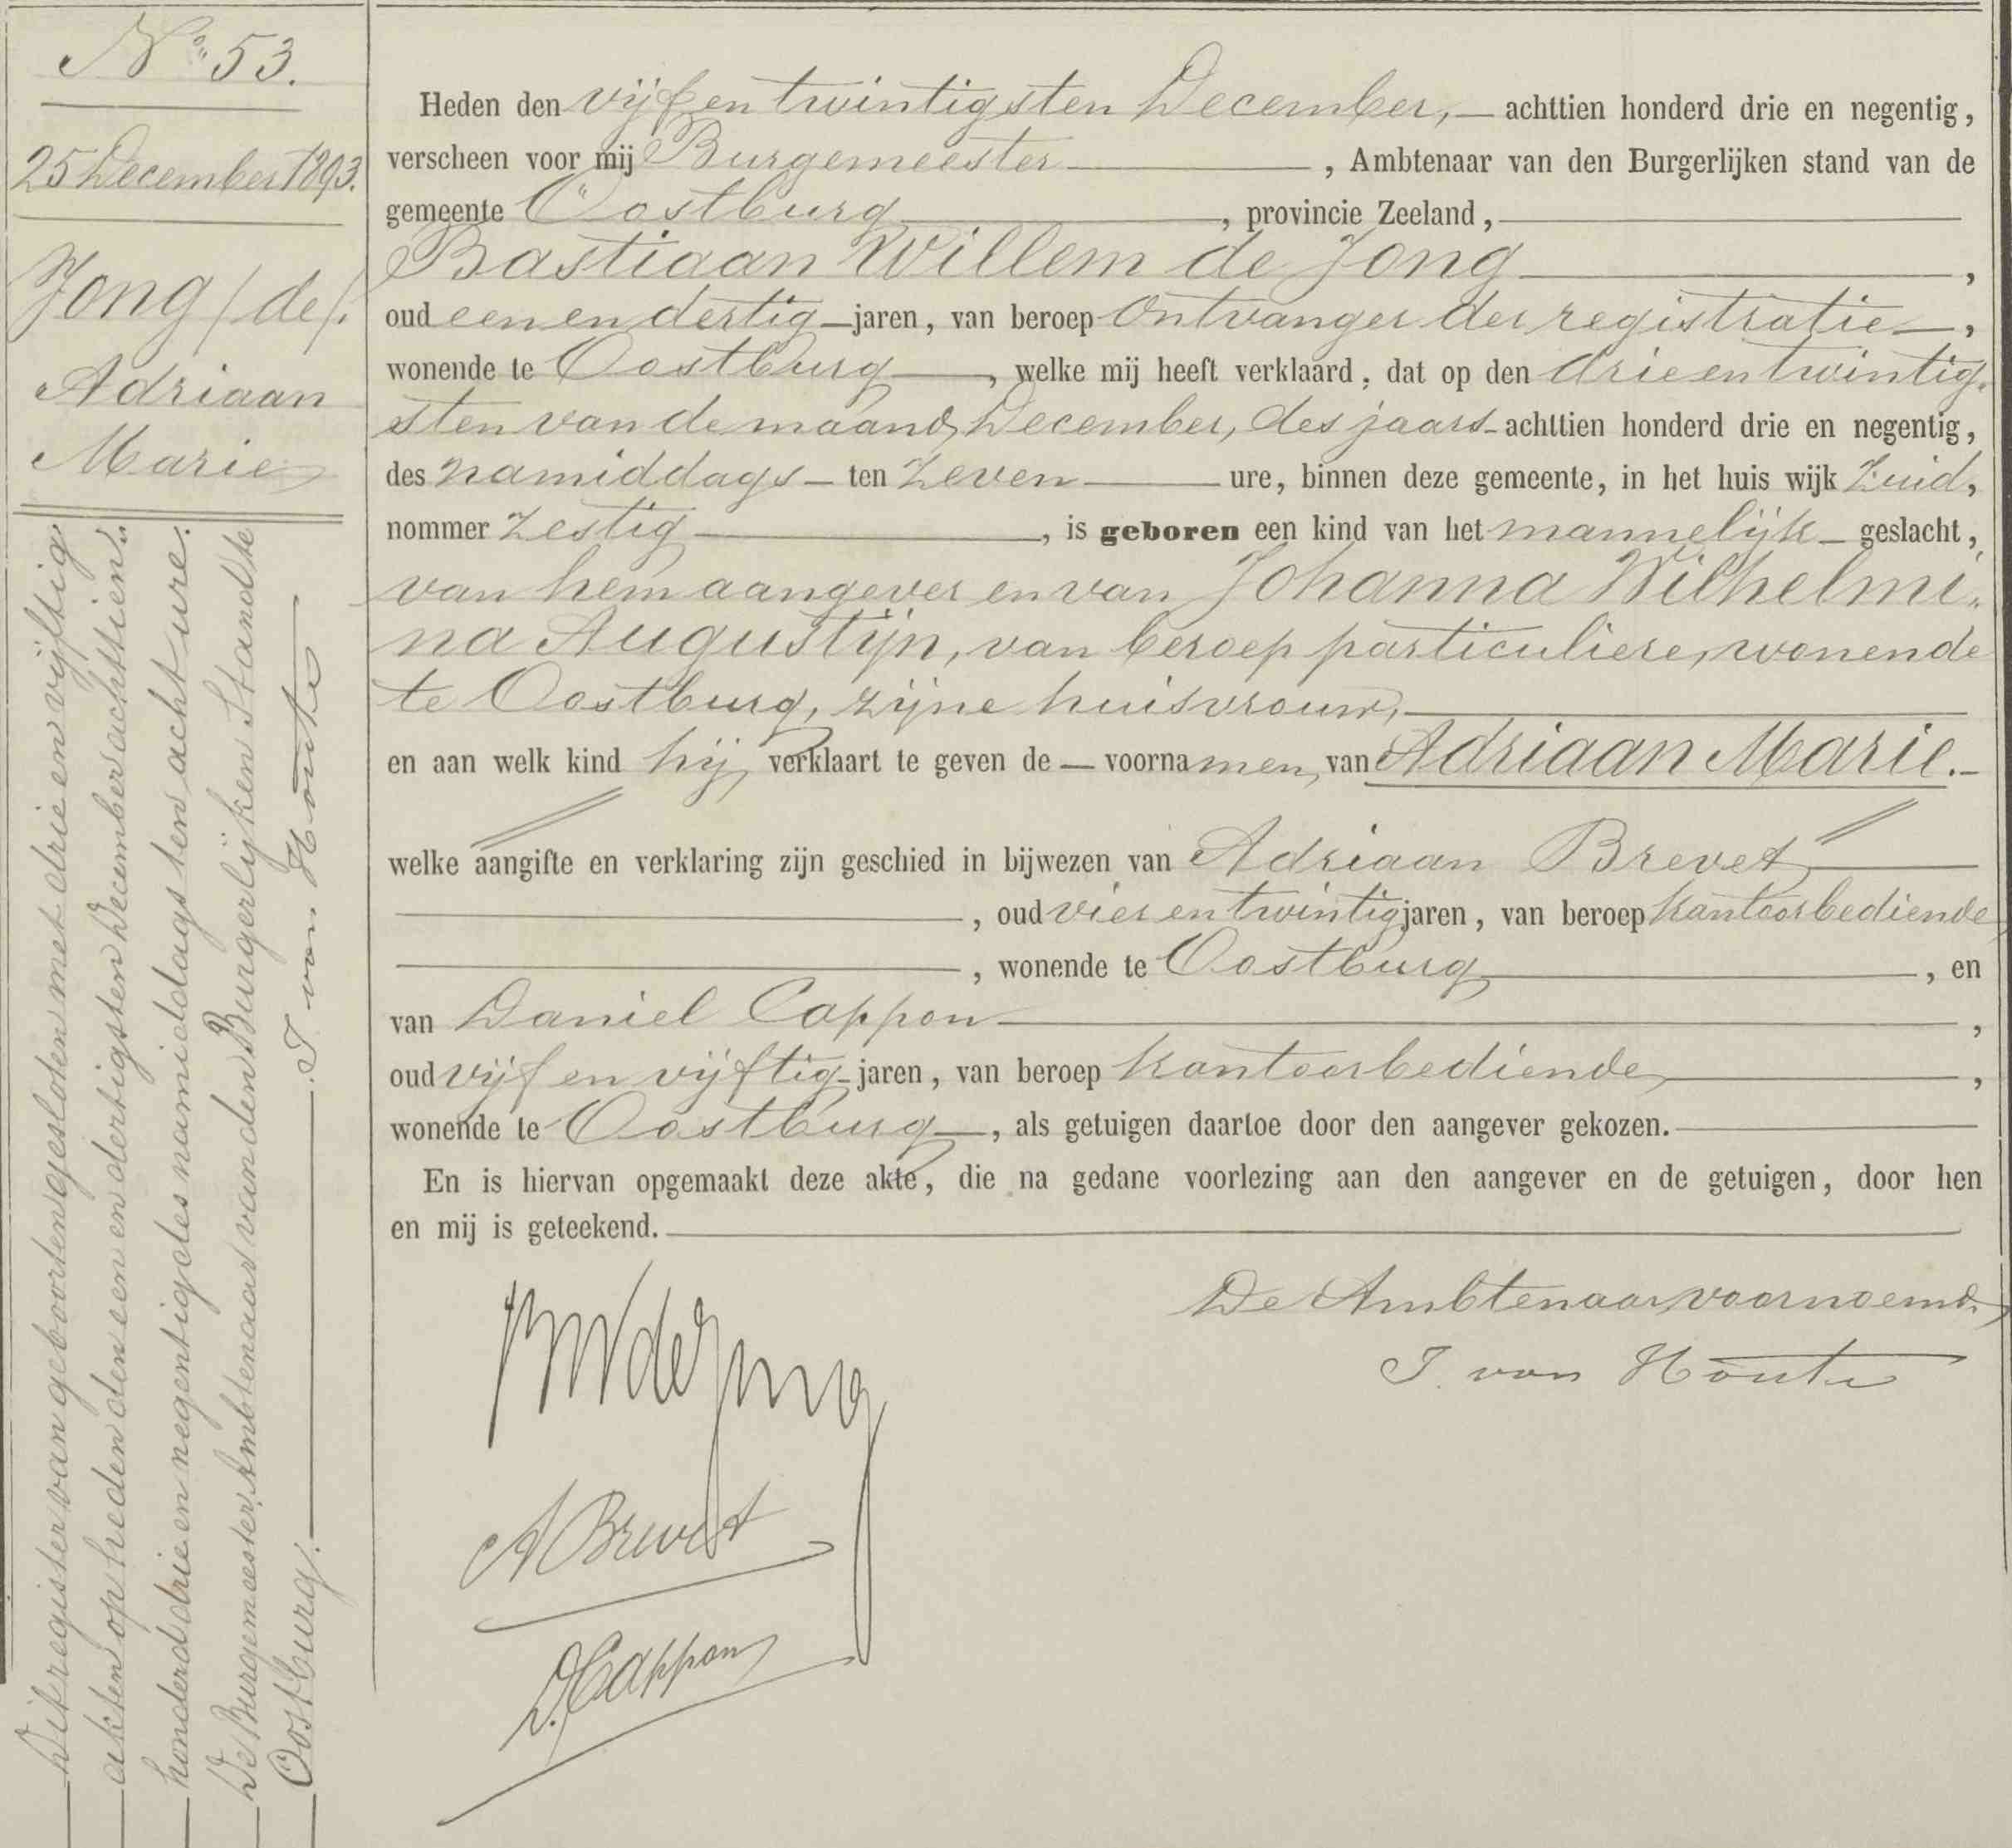 No. 53.
25 December 1893.
Jong (de).
Adriaan
Marie
Heden den vijf en twintigsten December, achttien honderd drie en negentig,
verscheen voor mij Burgemeester, Ambtenaar van den Burgerlijken stand van de
gemeente Oostburg, provincie Zeeland,
Bastiaan Willem de Jong,
oud een en dertig jaren, van beroep Ontvanger der registratie,
wonende te Oostburg, welke mij heeft verklaard, dat op den drie en twintig-
sten van de maand December, des jaars achttien honderd drie en negentig,
des namiddags ten zeven ure, binnen deze gemeente, in het huis wijk Zuid,
nommer zestig, is geboren een kind van het mannelijk geslacht,
van hem aangever en van Johanna Wilhelmi-
na Augustijn, van beroep particuliere, wonende
te Oostburg, zijne huisvrouw,
en aan welk kind hij verklaart te geven de voornamen van Adriaan Marie.
welke aangifte en verklaring zijn geschied in bijwezen van Adriaan Brevet
, oud vier en twintig jaren, van beroep kantoorbediende
, wonende te Oostburg, en
van Daniel Cappon,
oud vijf en vijftig jaren, van beroep kantoorbediende,
wonende te Oostburg, als getuigen daartoe door den aangever gekozen.
En is hiervan opgemaakt deze akte, die na gedane voorlezing aan den aangever en de getuigen, door hen
en mij is geteekend.
De Ambtenaar voornoemd,
J. van Houte
BW de Jong
A Brevet
D. Cappon
Dit register van geboorten gesloten met drie en vijftig
akten op heden den een en dertigsten December achttien-
honderd drie en negentig des namiddags ten acht ure.
De Burgemeester, Ambtenaar van den Burgerlijken Stand te
Oostburg. J. van Houte